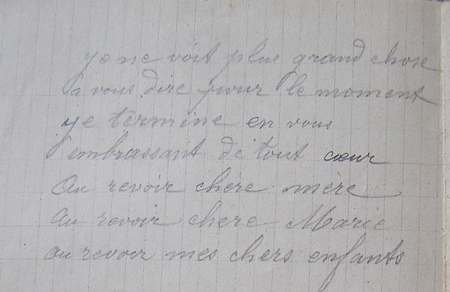 je ne voit plus grand chose
a vous dire pour le moment
je termine en vous
embrassant de tout cœur
Au revoir chère mère
au revoir chere Marie
au revoir mes chers enfants